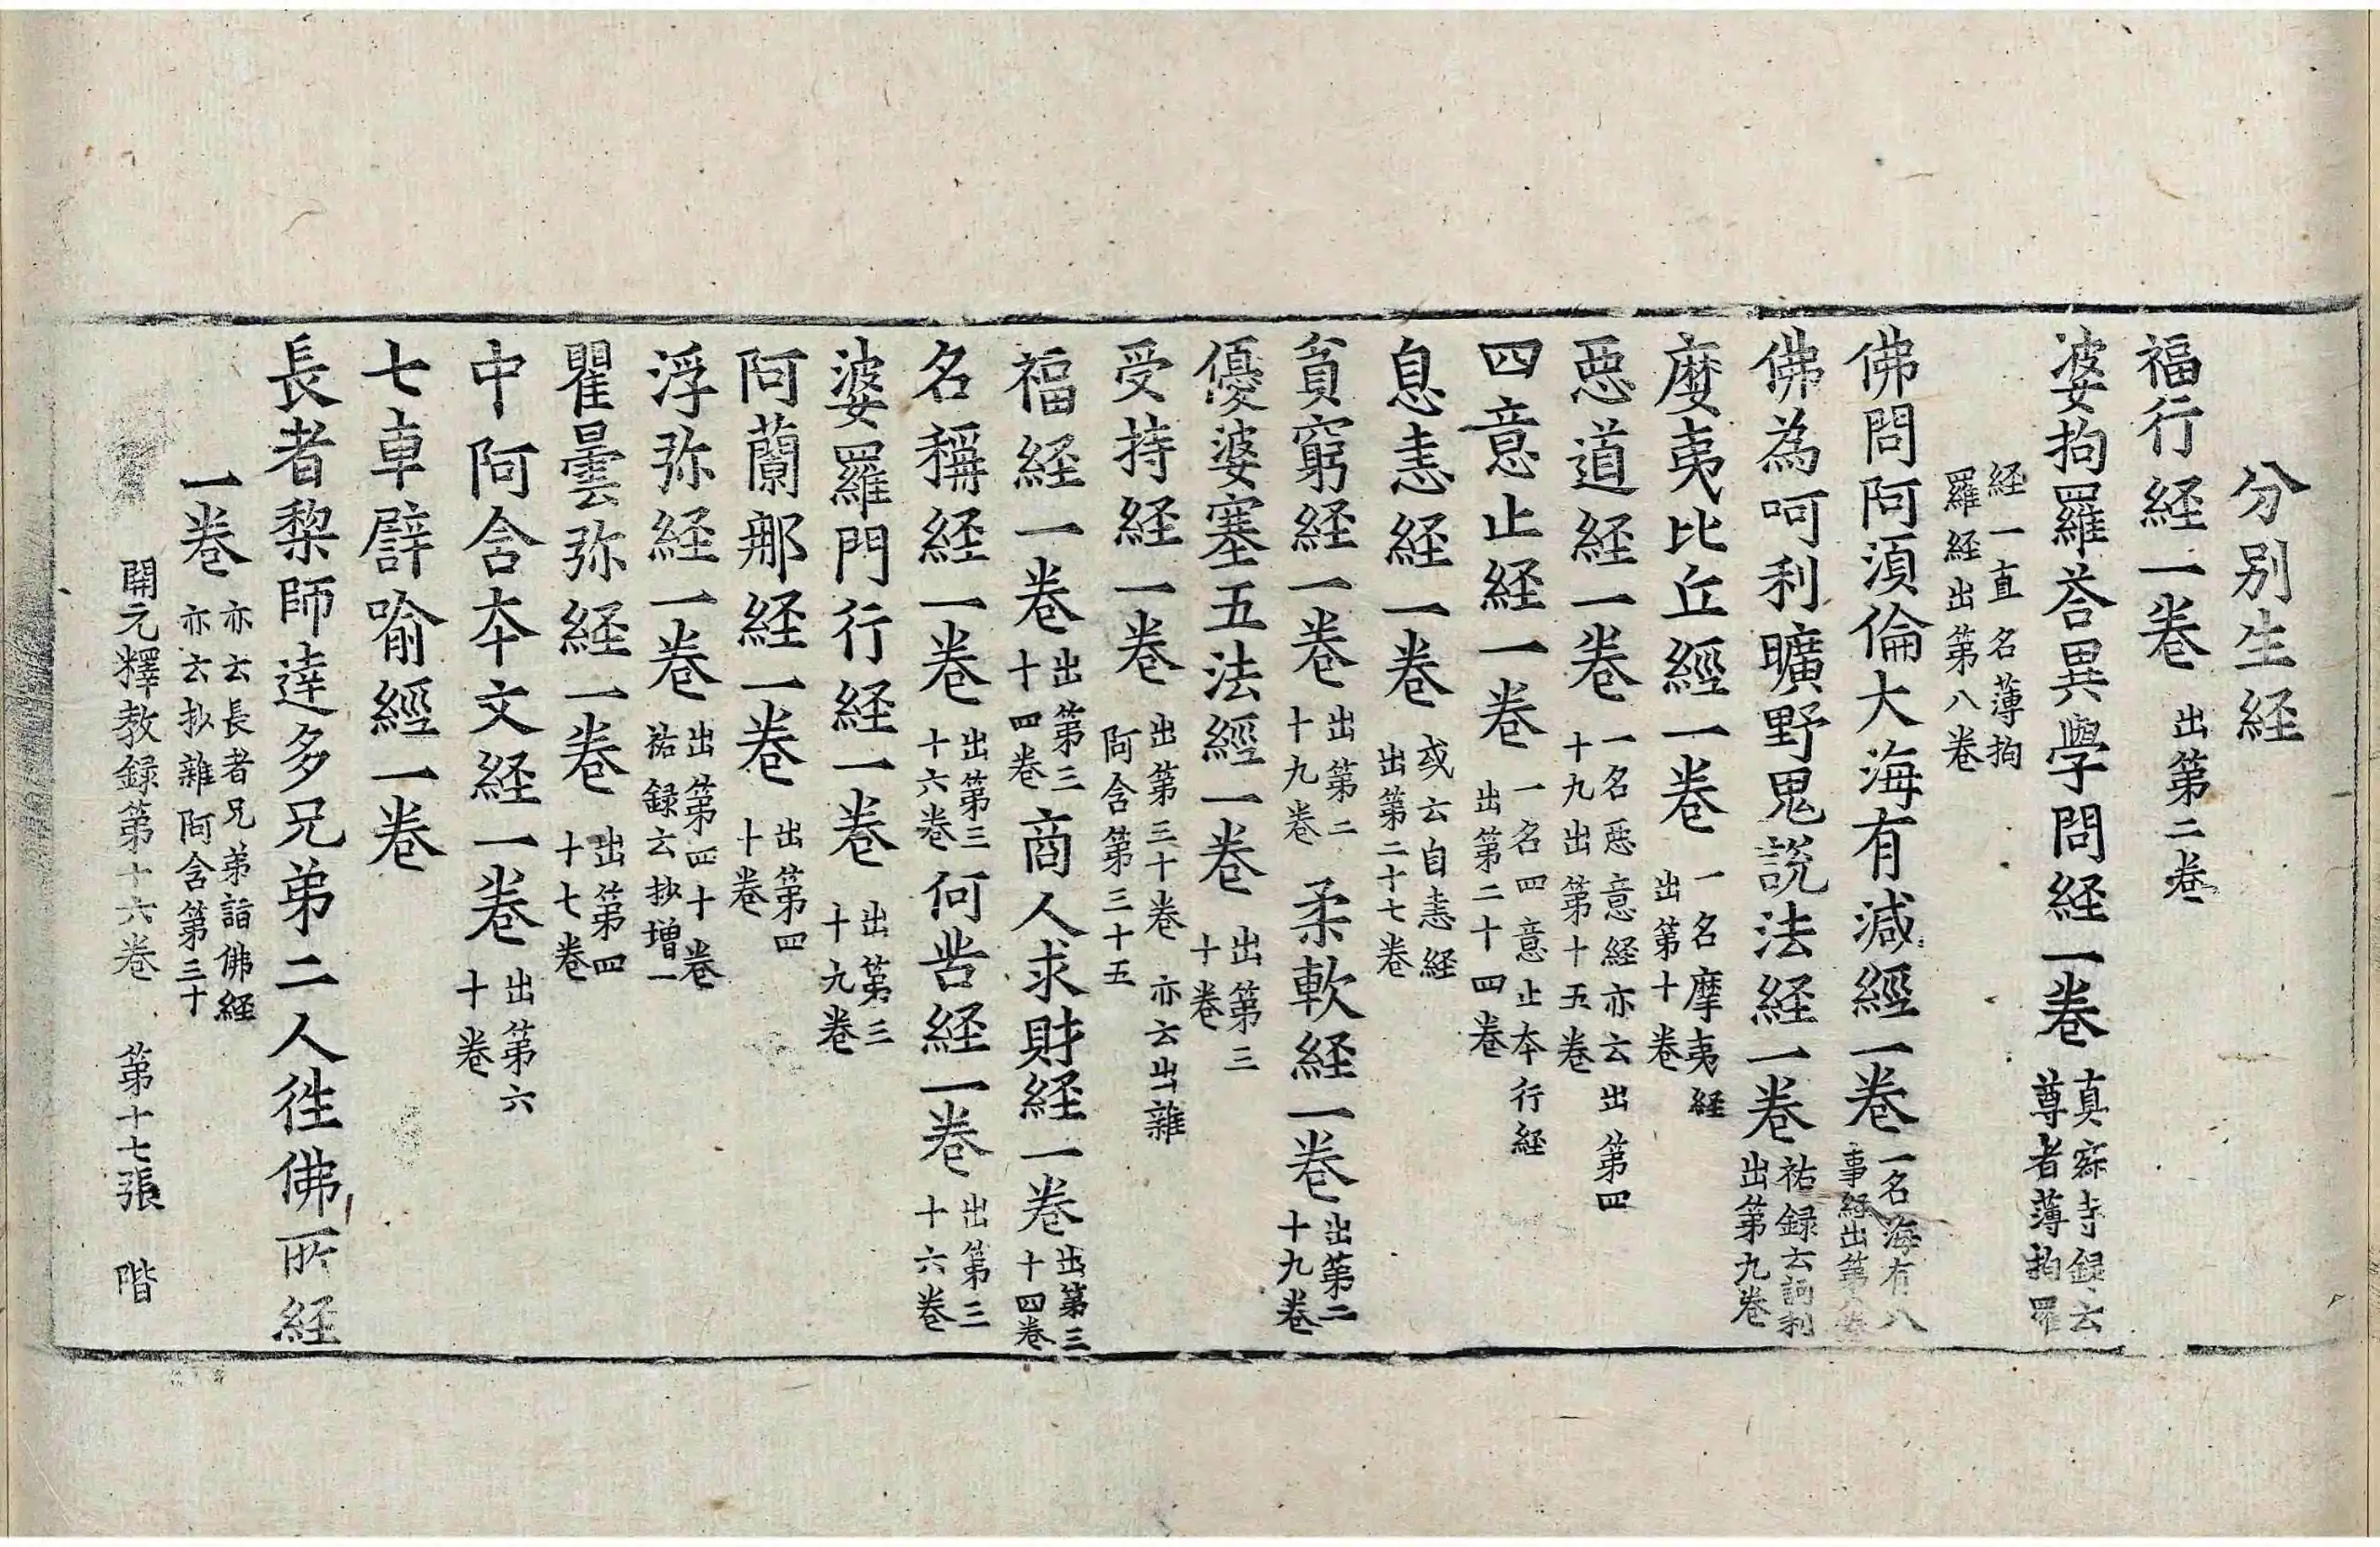 分別生経
福行経一卷 出第二卷
婆拘羅荅異學問経一卷 真寂寺録云尊者薄拘羅
経一直名薄拘羅経出第八卷
佛問阿湏倫大海有減經一卷 一名海有八事経出第八卷
佛為呵利曠野鬼說法経一卷 祐録云訶利出第九卷
麼夷比丘經一卷 一名摩夷経出第十卷
惡道経一卷 一名惡意経亦云出第四十九出第十五卷
四意止経一卷 一名四意止夲行経出第二十四卷
息恚経一卷 或云自恚経出第二十七卷
貧窮経一卷 出第二十九卷 柔軟経一卷 出第二十九卷
優婆塞五法經一卷 出第三十卷
受持経一卷 出第三十卷亦云出雜阿含第三十五
福経一卷 出第三十四卷 商人求財経一卷 出第三十四卷
名稱経一卷 出第三十六卷 何苦経一卷 出第三十六卷
婆羅門行経一卷 出第三十九卷
阿蘭那経一卷 出第四十卷
浮弥経一卷 出第四十卷祐録云抄增一
瞿曇弥経一卷 出第四十七卷
中阿含夲文経一卷 出第六十卷
七車譬喻經一卷
長者梨師達多兄弟二人徃佛所経
一卷 亦云長者兄弟詣佛経亦云抄雜阿含第三十
開元釋教録第十六卷 第十七張 階